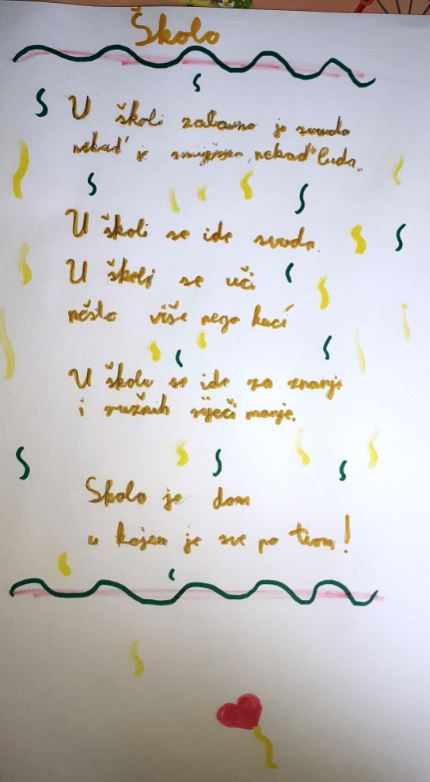 Škola
U školi zabavno je svuda
nekad je smiješno, nekad luda.
U školi se ide svuda.
U školi se uči
nešto više nego kući
U školu se ide za znanje
i ružnih riječi manje.
Skola je dom
u kojem je sve po tvom!